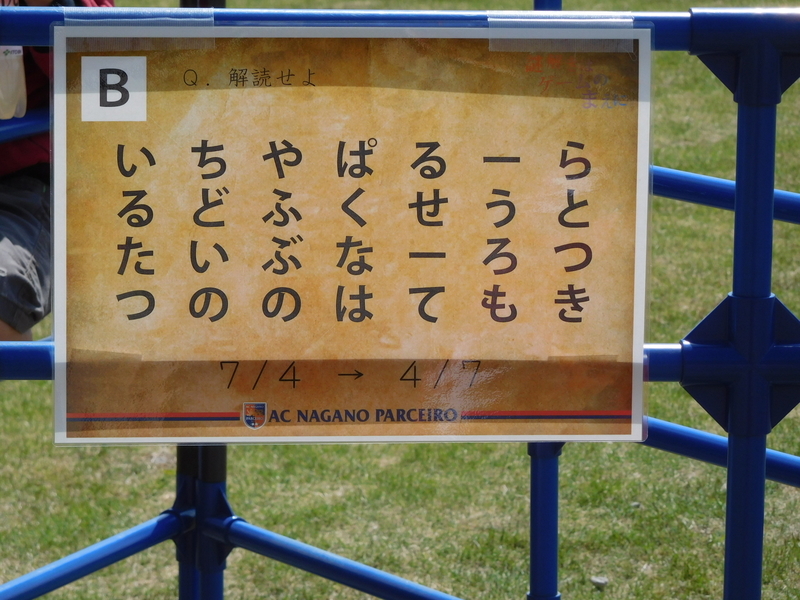 B
Q. 解読せよ
らとつき
ーうろも
るせーて
ぱくなは
やふぶの
ちどいの
いるたつ
7/4 → 4/7
AC NAGANO PARCEIRO